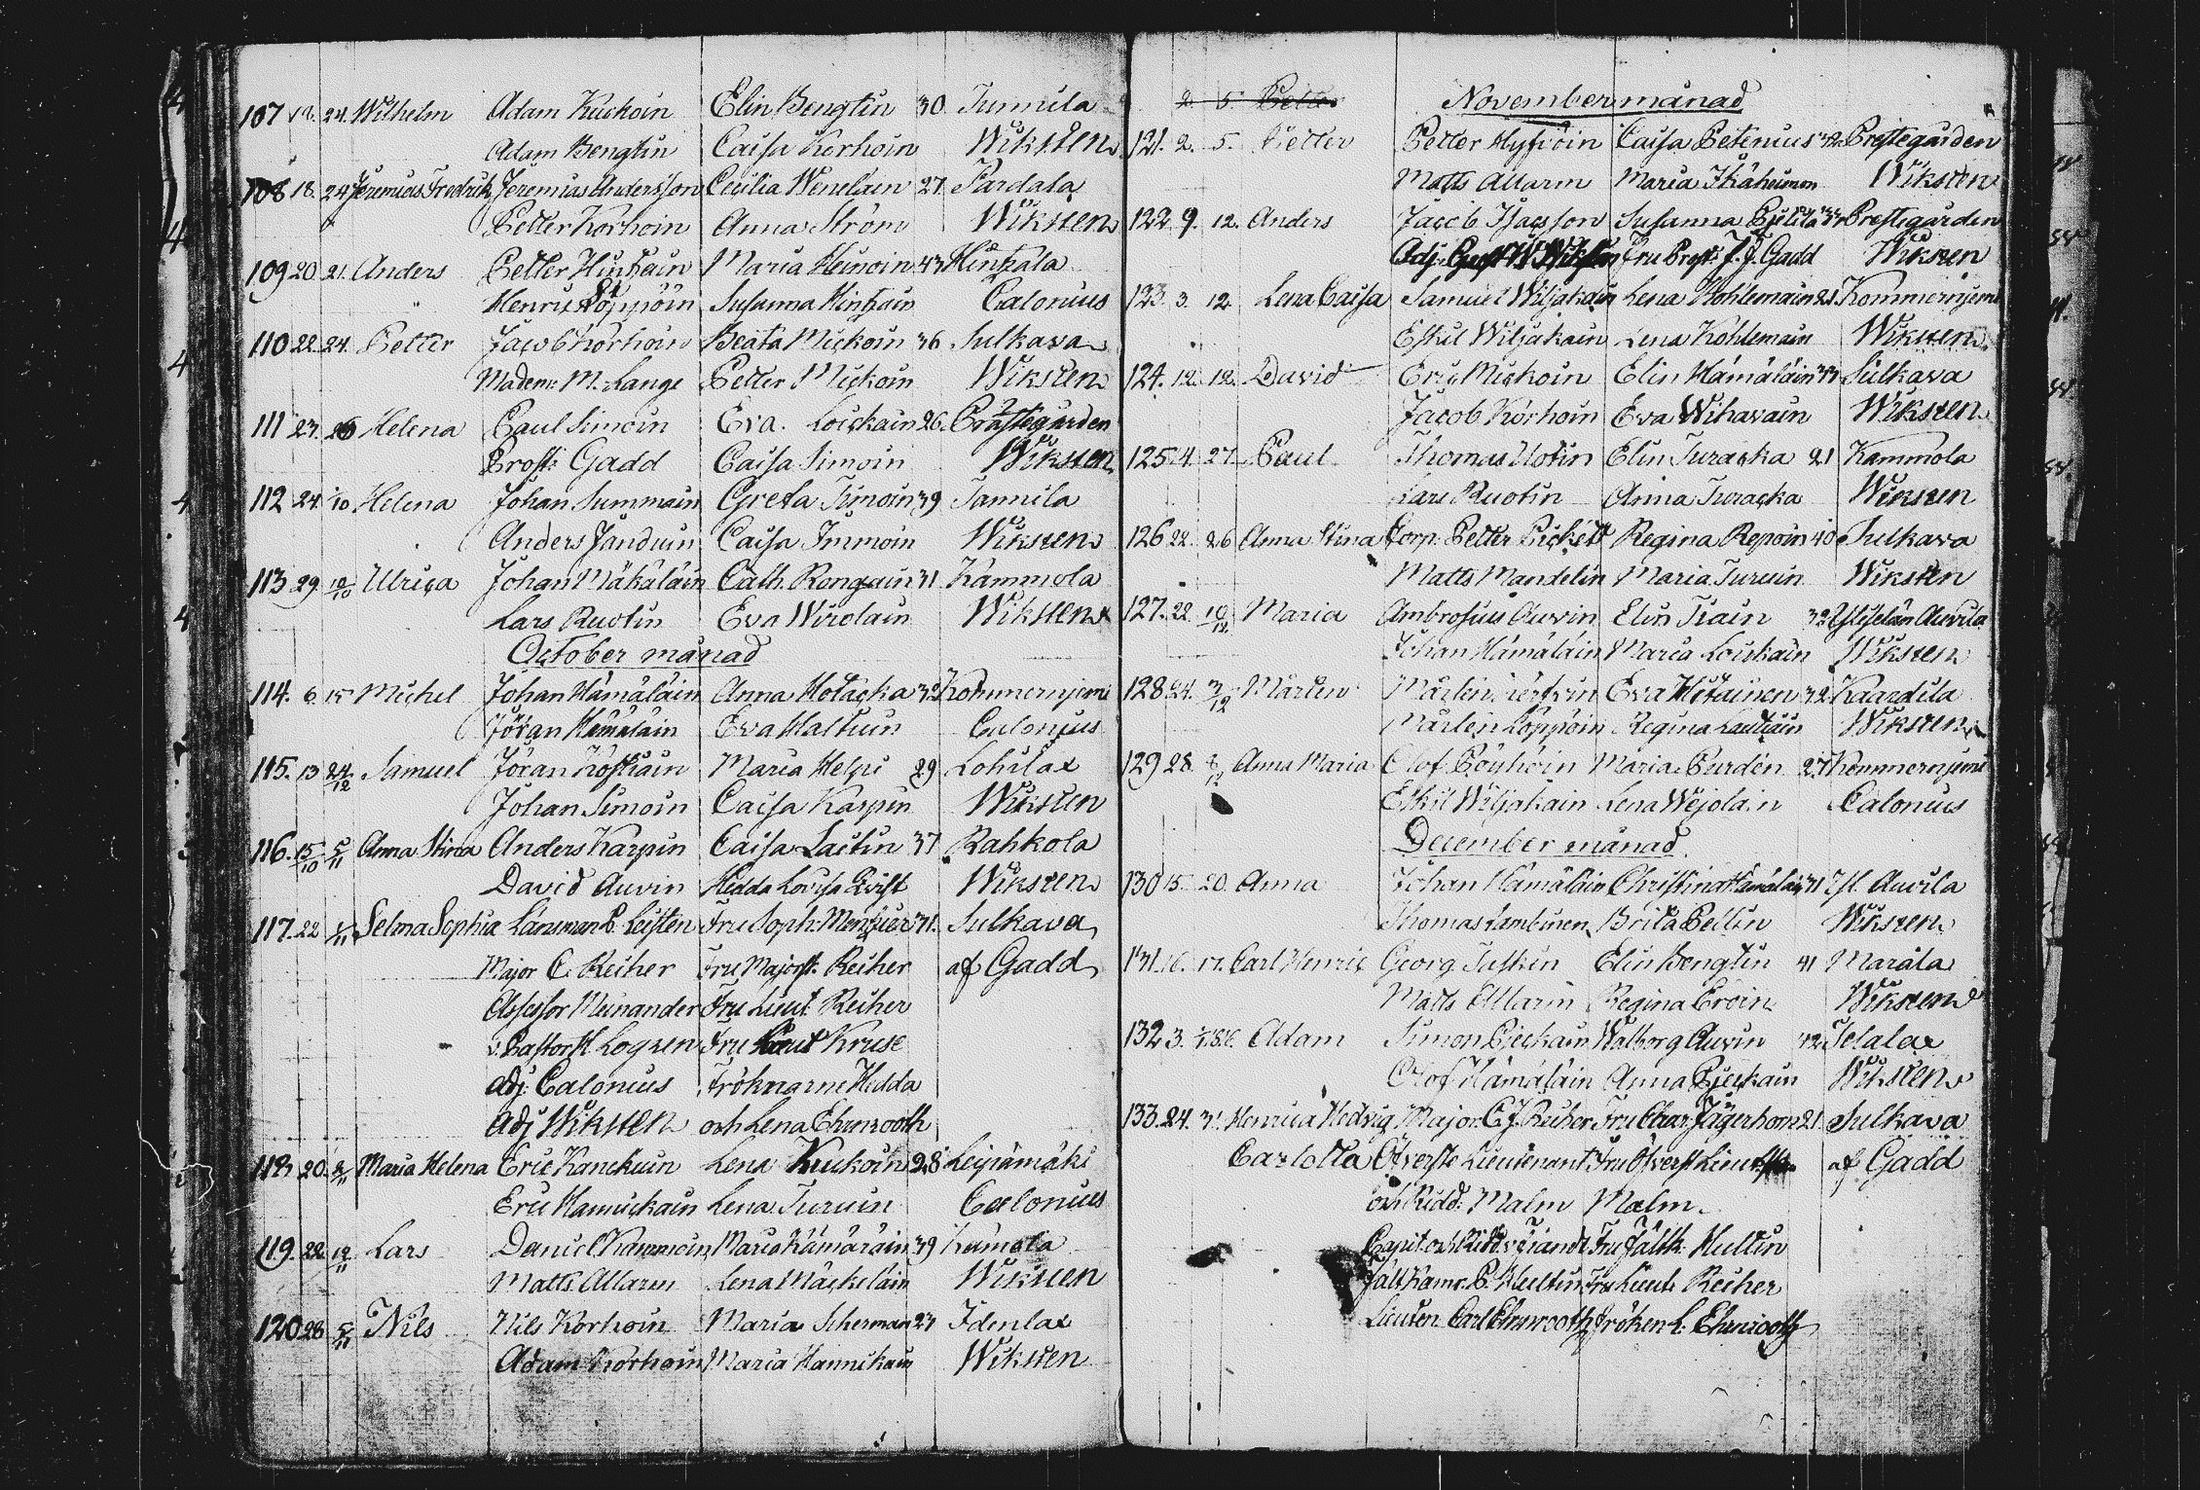 107 18. 24. Wilhelm Adam Kuckoin Elin Bengtin 30. Tunnila
Adam Bengtin Caisa Korhoin Wiksten
108 18. 24 Jeremias Fredrik Jeremias Andersson Cecilia Wenelain 27. Pardala
Petter Korhoin Anna Ström Wiksten
109 20 21. Anders Petter Hintzain Maria Heinoin 43 Hintzala
Henric Susanna Hintzain Calonius
110 22. 24. Petter Jacob Korhoin Beata Mickoin 36 Sulkava
Madem: M. Lange Petter Mickoin Wiksten
111 23. 26 Helena Paul Simoin Eva Loickain 26. Prästegården
Prost: Gadd Caisa Simoin Wiksten
112 24. Helena Johan Summain Greta Timoin 39 Tannila
Anders Janduin Caisa Immoin Wiksten
113 29. 12/10 Ulrica Johan Mäkäläin Cath. Rongain 31 Kammola
Lars Ruotin Eva Wirolain Wiksten
October månad
114. 6. 15 Michel Johan Hämäläin Anna Holacka 32 Kommerniemi
Jöran Hämäläin Eva Haltuin Calonius
115. 13 24/12 Samuel Jöran Köstiäin Maria Helpi 29 Lohilax
Johan Simoin Caisa Karpin Wiksten
116. 15/10 5/11 Anna Stina Anders Karpin Caisa Laitin 37 Rahkola
David Auvin Hedda Lovisa Qvist Wiksten
117. 22 Selma Sophia Länsman P. Leisten Fru Soph: 31. Sulkava
Major C. Reiher Fru Majorsk. Reiher af Gadd
Assessor Meinander Fru Lieut: Reiher
Pastor H. Logren Fru Kruse
Adj: Calonius Fröknarne Hedda
Adj Wiksten och Lena Ehrnrooth
118 20. Maria Helena Eric Kanckuin Lena Kuckoin 28 Leipämäki
Eric Hannickain Lena Turuin Calonius
119. 22. 12/11 Lars Daniel Maria Kämäräin 39 Kamola
Matts Allarm Lena Mäckeläin Wiksten
120 28 5/11 Nils Nils Korhoin Maria Scherman 27 Idenlax
Adam Korhoin Maria Hannikain Wiksten
2. 5. Petter
November månad
121. 2. 5. Petter Petter Hyfvöin Caisa Petenius 32 Prestegården
Matts Allarm Maria Ikäheimon Wiksten
122 9. 12. Anders Jacob Isacsson Susanna Prestegården
Adj: Fru Prost. J. J. Gadd Wiksten
123. 3. 12. Lena Caisa Samuel Wiljakain Lena Kohlemain 21 Kommerniemi
Eskil Wiljakain Lena Kohlemain Wiksten
124. 12. 12. David Eric Mickoin Elin Hämäläin 33 Sulkava
Jacob Korhoin Eva Wihavain Wiksten
125. 4. 27 Paul Thomas Uotin Elin Turacka 21 Kammola
Lars Ruotin Anna Turacka Wiksten
126 22. 26 Anna Stina Corp: Petter Regina Repoin 40 Sulkava
Matts Mandelin Maria Turuin Wiksten
127. 22. 10/12 Maria Ambrosius Auvin Elin Tiain 32 Auvila
Johan Hämäläin Maria Loickain Wiksten
128 24. 3/12 Mårten Mårten Eva Hirvainen 32. Kaartila
Mårten Löppöin Regina Lautiain Wiksten
129 28. 8/12 Anna Maria Olof Pöyhöin Maria Purdén 27 Kommerniemi
Eskil Wiljakain Lena Wejolain Calonius
December månad
130 15. 20. Anna Johan Hämäläin Christina Hämäläin 31 Auvila
Thomas Lambinen Brita Pellin Wiksten
131. 16. 17. Carl Henric Georg Tuskin Elin Bengtin 41 Marala
Matts Allarm Regina Eroin Wiksten
132. 3. Adam Simon Pjeckain Walborg Auvin 42 Telalax
Olof Hämäläin Anna Pjeckain Wiksten
133. 24. 31. Henrica Hedvig Major C. J. Reiher Fru Jägerhorn 21 Sulkava
Carlotta Öfverste Lieutenant Fru Öfverst Lieut af Gadd
och Ridd: Malm Malm
Capit. och Ridd: Fru Fältk. Hultin
Fält Kamr. P. Hultin Fru Lieut: Reiher
Lieuten. Carl Ehrnrooth Fröken L. Ehrnrooth